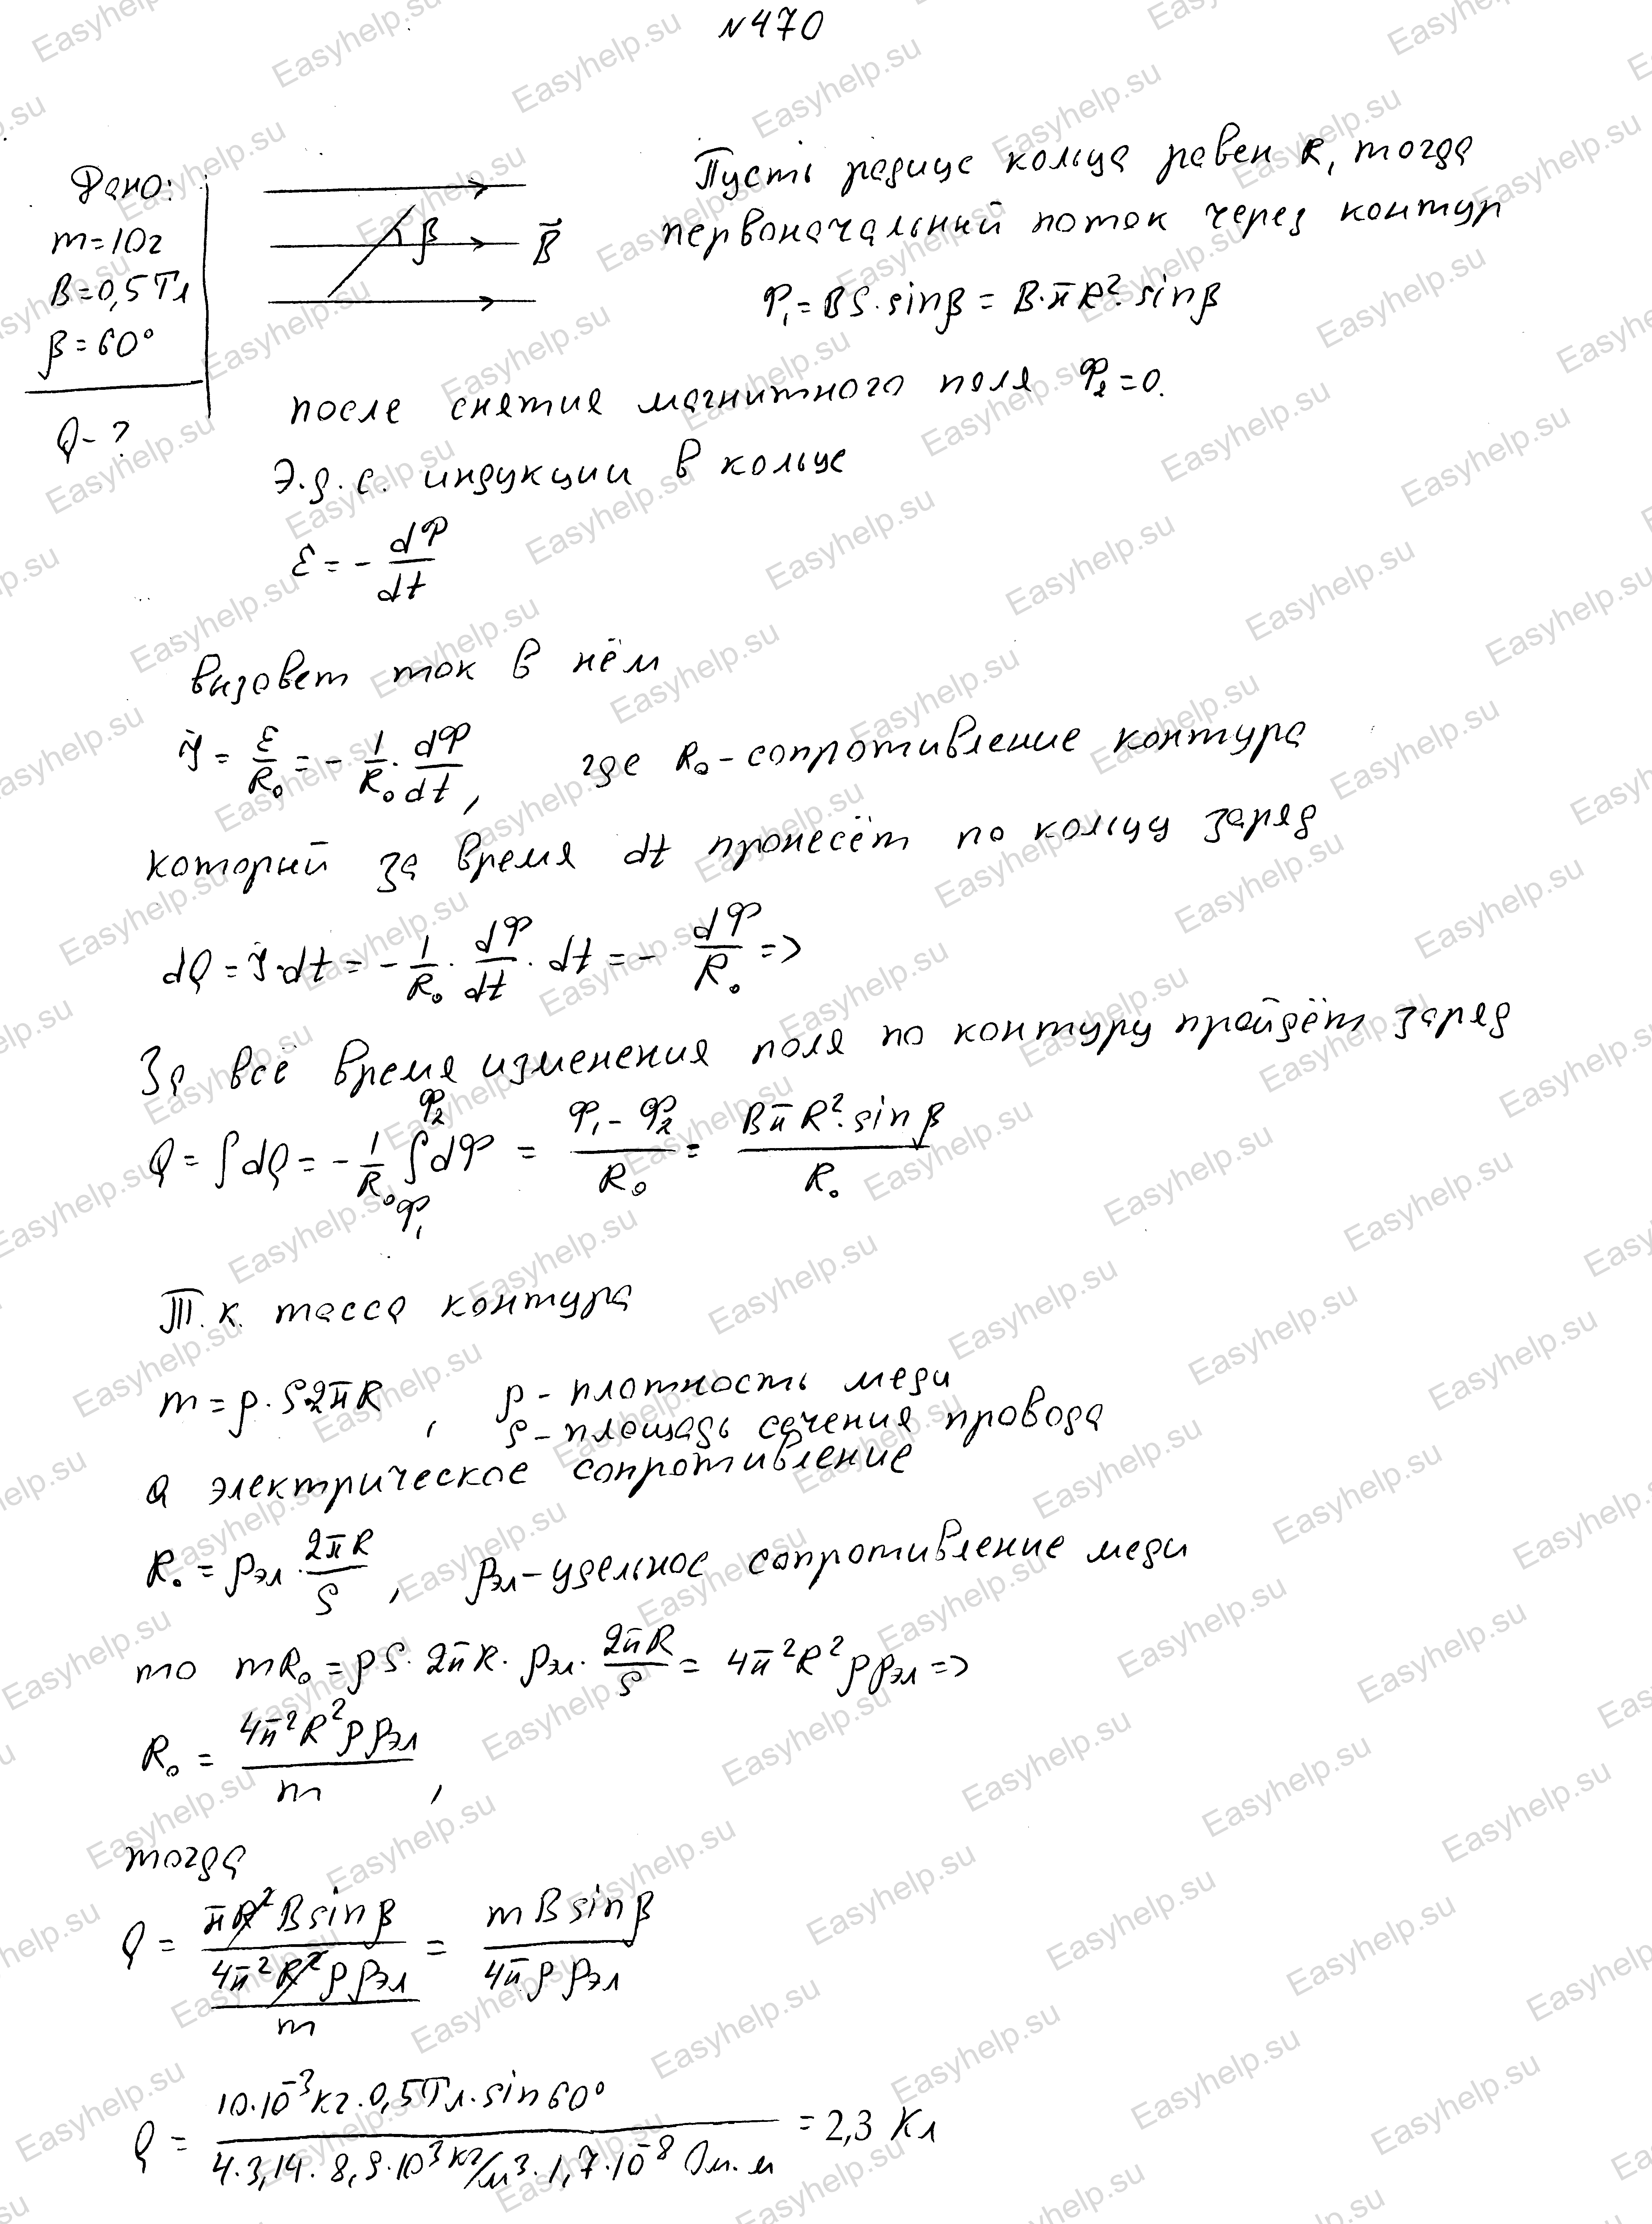 №470
Дано:
m=10г
B=0,5Тл
β=60°
Q-?
β
B⃗
Пусть радиус кольца равен R, тогда
первоначальный поток через контур
Φ₁=BS·sinβ=B·πR²·sinβ
после снятия магнитного поля Φ₂=0.
Э.д.с. индукции в кольце
ε=-dΦ/dt
вызовет ток в нём
I=ε/R₀=-1/R₀·dΦ/dt, где R₀-сопротивление контура
который за время dt пронесёт по кольцу заряд
dQ=I·dt=-1/R₀·dΦ/dt·dt=-dΦ/R₀=>
За всё время изменения поля по контуру пройдёт заряд
Q=∫dQ=-1/R₀∫_Φ₁^Φ₂dΦ=(Φ₁-Φ₂)/R₀=BπR²·sinβ/R₀
Т.к. масса контура
m=ρ·S2πR, ρ-плотность меди
S-площадь сечения провода
а электрическое сопротивление
R₀=ρэл·2πR/S, ρэл-удельное сопротивление меди
то mR₀=ρS·2πR·ρэл·2πR/S=4π²R²ρρэл=>
R₀=4π²R²ρρэл/m,
тогда
Q=πR²Bsinβ/(4π²R²ρρэл/m)=mBsinβ/4πρρэл
Q=10·10⁻³кг·0,5Тл·sin60°/4·3,14·8,9·10³кг/м³·1,7·10⁻⁸Ом·м=2,3 Кл
Easyhelp.su